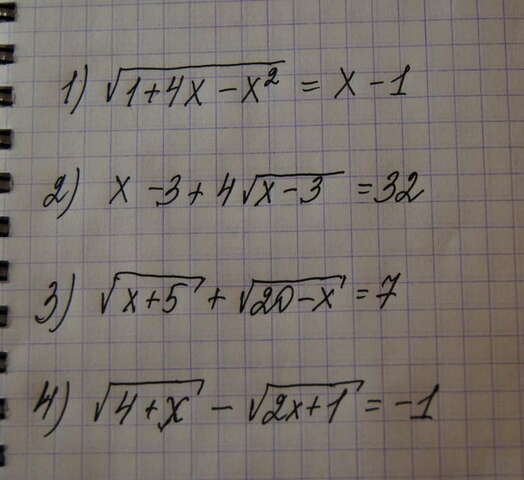 1) √(1+4x-x²) = x-1
2) x-3+4√(x-3) =32
3) √(x+5) + √(20-x) =7
4) √(4+x) - √(2x+1) = -1